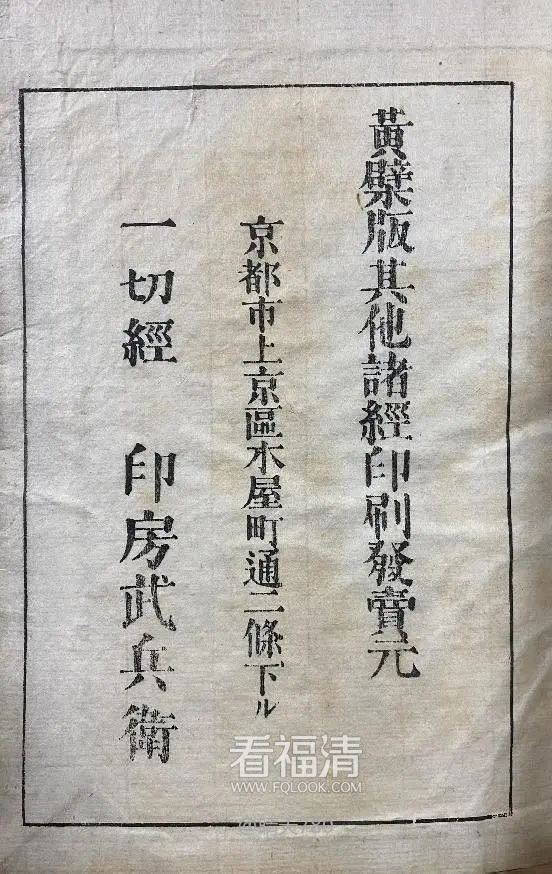 黃檗版其他諸經印刷發賣元
京都市上京區木屋町通二條下ル
一切經 印房武兵衛
看福清
WWW.FQLOOK.COM